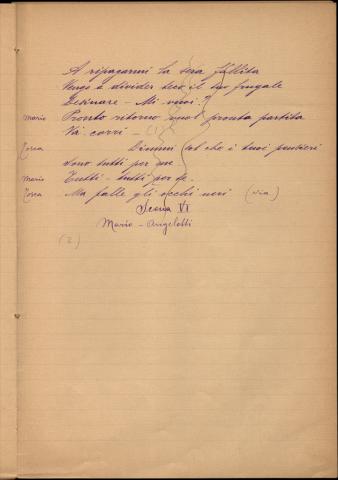 A ripagarmi la sera fallita
Vengo a divider teco il tuo frugale
Desinare - Mi vuoi?
Mario Pronto ritorno vuol pronta partita
Va - corri - (1)
Tosca Dimmi sol che i tuoi pensieri
Sono tutti per me
Mario Tutti - tutti per te.
Tosca Ma falle gli occhi neri (via)
Scena VI
Mario - Angelotti
(2)